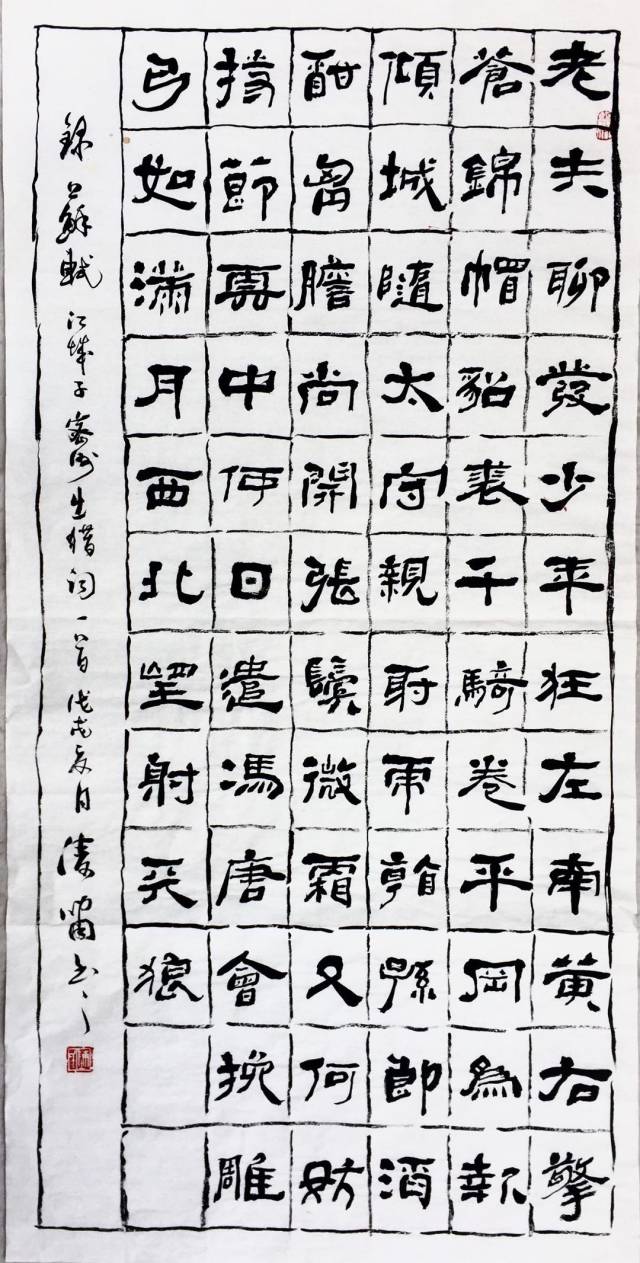 老夫聊發少年狂左牽黃右擎
蒼錦帽貂裘千騎卷平岡為報
傾城隨太守親射虎看孫郎酒
酣胸膽尚開張鬢微霜又何妨
持節雲中何日遣馮唐會挽雕
弓如滿月西北望射天狼
錄蘇軾江城子密州出猎词一首戊戌夏月凌嘯书